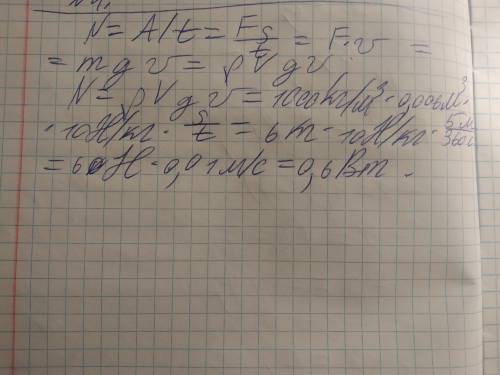 N = A/t = Fs/t = F·v =
= m g v = ρ V g v
N = ρ V g v = 1000 кг/м³ · 0,006 м³ ·
· 10 Н/кг · s/t = 6 кг · 10 Н/кг · 5м/360с
= 60 Н · 0,01 м/с = 0,6 Вт.